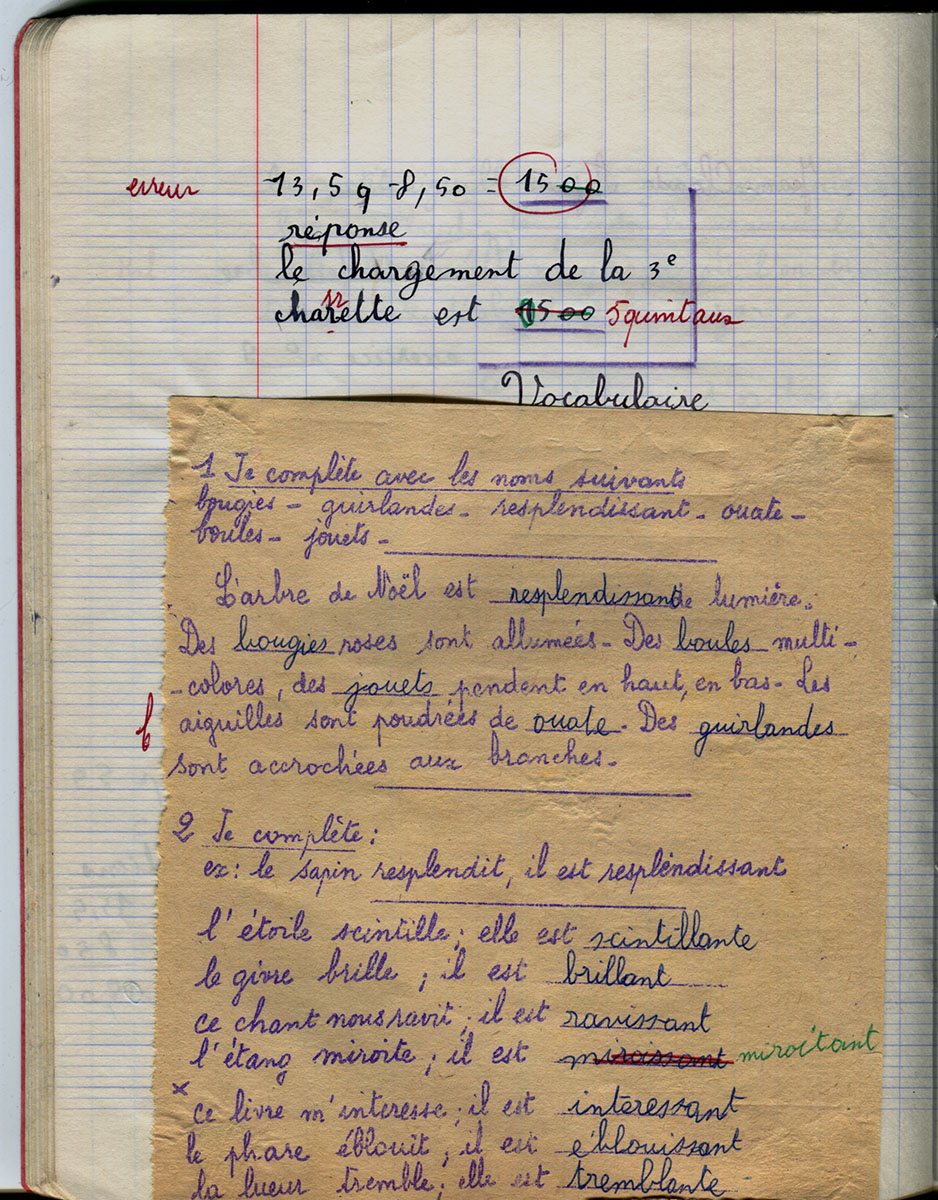 erreur 13,5 q - 8,50 = 1500
réponse
le chargement de la 3e
charette est 1500 5 quintaux
rr
Vocabulaire
1 Je complète avec les noms suivants
bougies - guirlandes - resplendissant - ouate -
boules - jouets -
L'arbre de Noël est resplendissant de lumière.
Des bougies roses sont allumées - Des boules multi-
-colores, des jouets pendent en haut, en bas - Les
aiguilles sont poudrées de ouate - Des guirlandes
sont accrochées aux branches -
2 Je complète :
ex : le sapin resplendit, il est resplendissant
l'étoile scintille ; elle est scintillante
le givre brille ; il est brillant
ce chant nous ravit ; il est ravissant
l'étang miroite ; il est miroissant miroitant
x
ce livre m'interesse ; il est intéressant
le phare éblouit ; il est éblouissant
la lueur tremble ; elle est tremblante